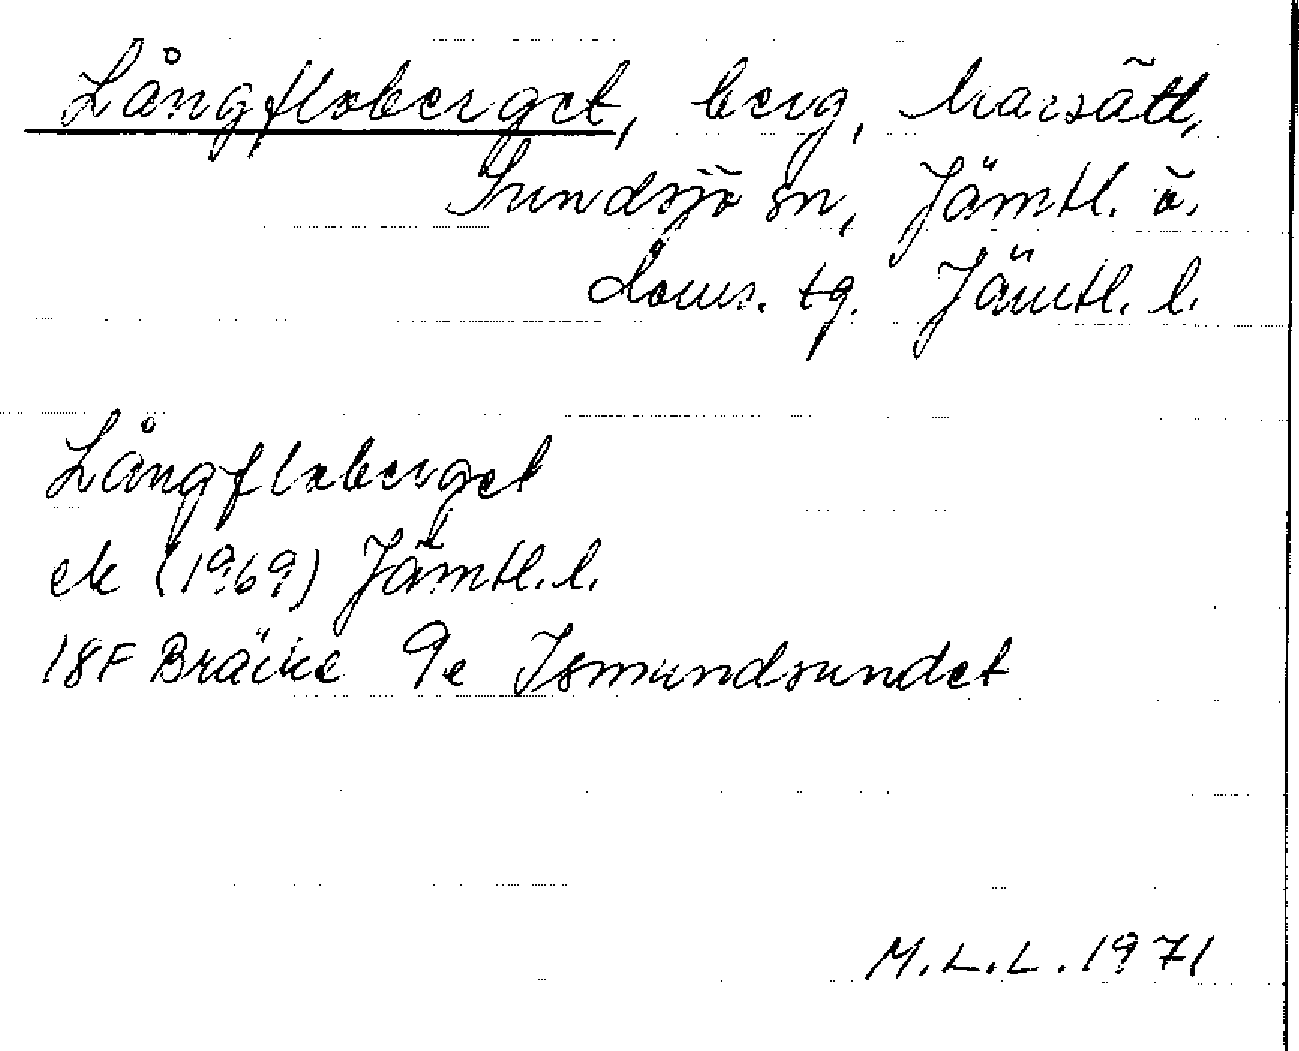 Långfloberget, berg, Marsätt,
Sundsjö sn, Jämtl. ö.
doms. tg. Jämtl. l.
Långfloberget
ek (1969) Jämtl. l.
18F Bräcke 9e Ismundsundet
M.L.L. 1971